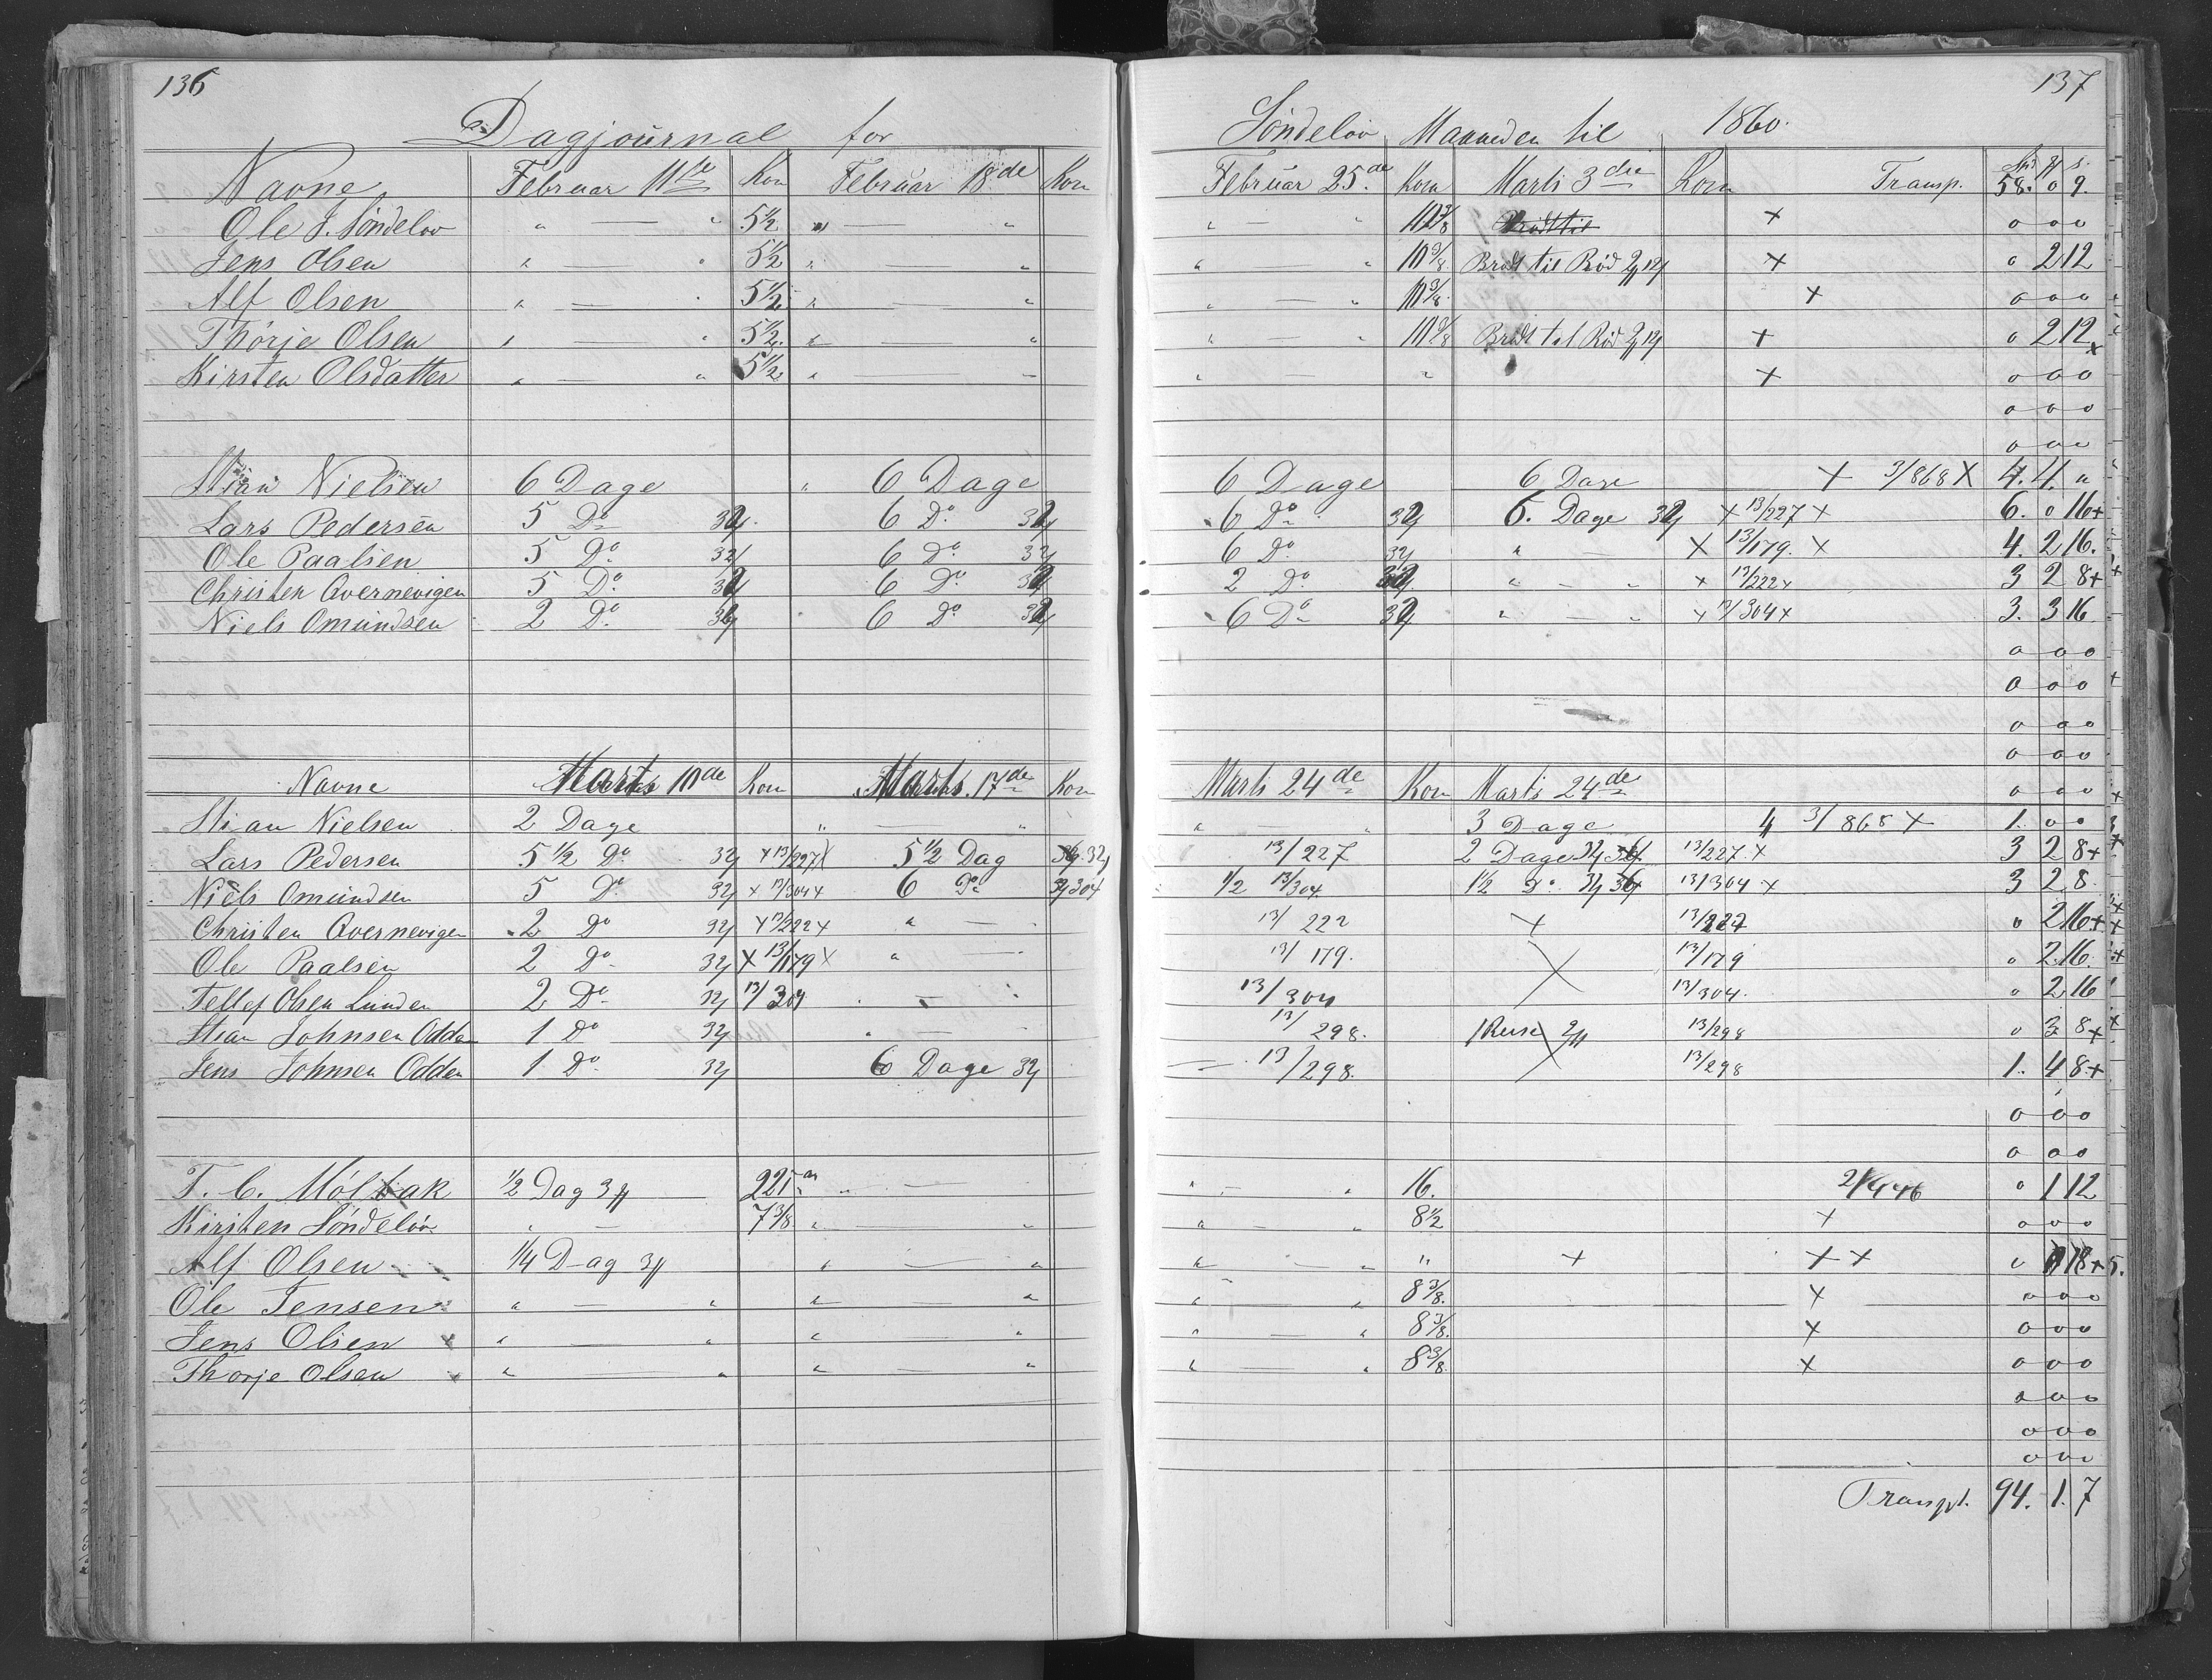 136
Dagjournal for
Navne Februar 11te Korn Februar 18de Korn
Ole J. Söndelöv " — " 5 1/2 " — "
Jens Olsen " — " 5 1/2 " — "
Alf Olsen " — " 5 1/2 " — "
Thörje Olsen " — " 5 1/2 " — "
Kirsten Olsdatter " — " 5 1/2 " — "
Stian Nielsen 6 Dage " 6 Dage
Lars Pedersen 5 Do 32 6 Do 32
Ole Paalsen 5 Do 32 6 Do 32
Christen Qvernevigen 5 Do 32 6 Do 32
Niels Omundsen 2 Do 32 6 Do 32
Navne Marts 10de Korn Marts 17de Korn
Stian Nielsen 2 Dage " — "
Lars Pedersen 5 1/2 Do 32 x 13/227 x 5 1/2 Dag 32
Niels Omundsen 5 Do 32 x 13/304 x 6 Do 304
Christen Qvernevigen 2 Do 32 x 13/222 x " —
Ole Paalsen 2 Do 32 x 13/179 x " —
Tellef Olsen Lunden 2 Do 32 13/304 —
Stian Johnsen Odden 1 Do 32 " —
Jens Johnsen Odden 1 Do 32 6 Dage 32
T. C. Mölbak 1/2 Dag 3 221 " —
Kirsten Söndelöv " — 7 3/8 " — "
Alf Olsen 1/4 Dag 3 " — "
Ole Jensen " — " " — "
Jens Olsen " — " " — "
Thorje Olsen " — " " — "
137
Söndelöv Maaneden til 1860.
Februar 25de Korn Marts 3die Korn Transp. 58. 0 9.
" — " 10 3/8 x 0 0 0
" — " 10 3/8 Brödt til Röd x 0 2 12
" — " 10 3/8 x 0 0 0
" — " 10 3/8 Brödt til Röd x 0 2 12
" " x 0 0 0
0 0 0
0 0 0
6 Dage 6 Dage x 3/868 x 4. 4. "
6 Do 32 6. Dage 32 x 13/227 x 6. 0 16 +
6 Do 32 " — x 13/179. x 4. 2 16.
2 Do 32 " — " x 13/222 x 3 2 8 +
6 Do 32 " — " x 13/304 x 3. 3 16
0 0 0
0 0 0
0 0 0
0 0 0
Marts 24de Korn Marts 24de 0 0 0
" — " 3 Dage 3/868 x 1. 0 0
13/227 2 Dage 32 13/227. x 3 2 8 +
1/2 13/304. 1 1/2 Do 13/304 x 3 2 8.
13/222 x 0 2 16 +
13/179. 13/179 0 2. 16.
13/304 13/304. 0 2 16
13/298. 1 Reise 13/298 0 3 8 +
— 13/298. 13/298 1. 4 8. +
0 0 0
0 0 0
" — " 16. 0 1 12
" — " 8 1/2 x 0 0 0
" — " " x x x 0 18 +
" " 8 3/8. x 0 0 0
" — " 8 3/8. x 0 0 0
" — " 8 3/8. x 0 0 0
0 0 0
0 0 0
0 0 0
Transpt. 94. 1. 7